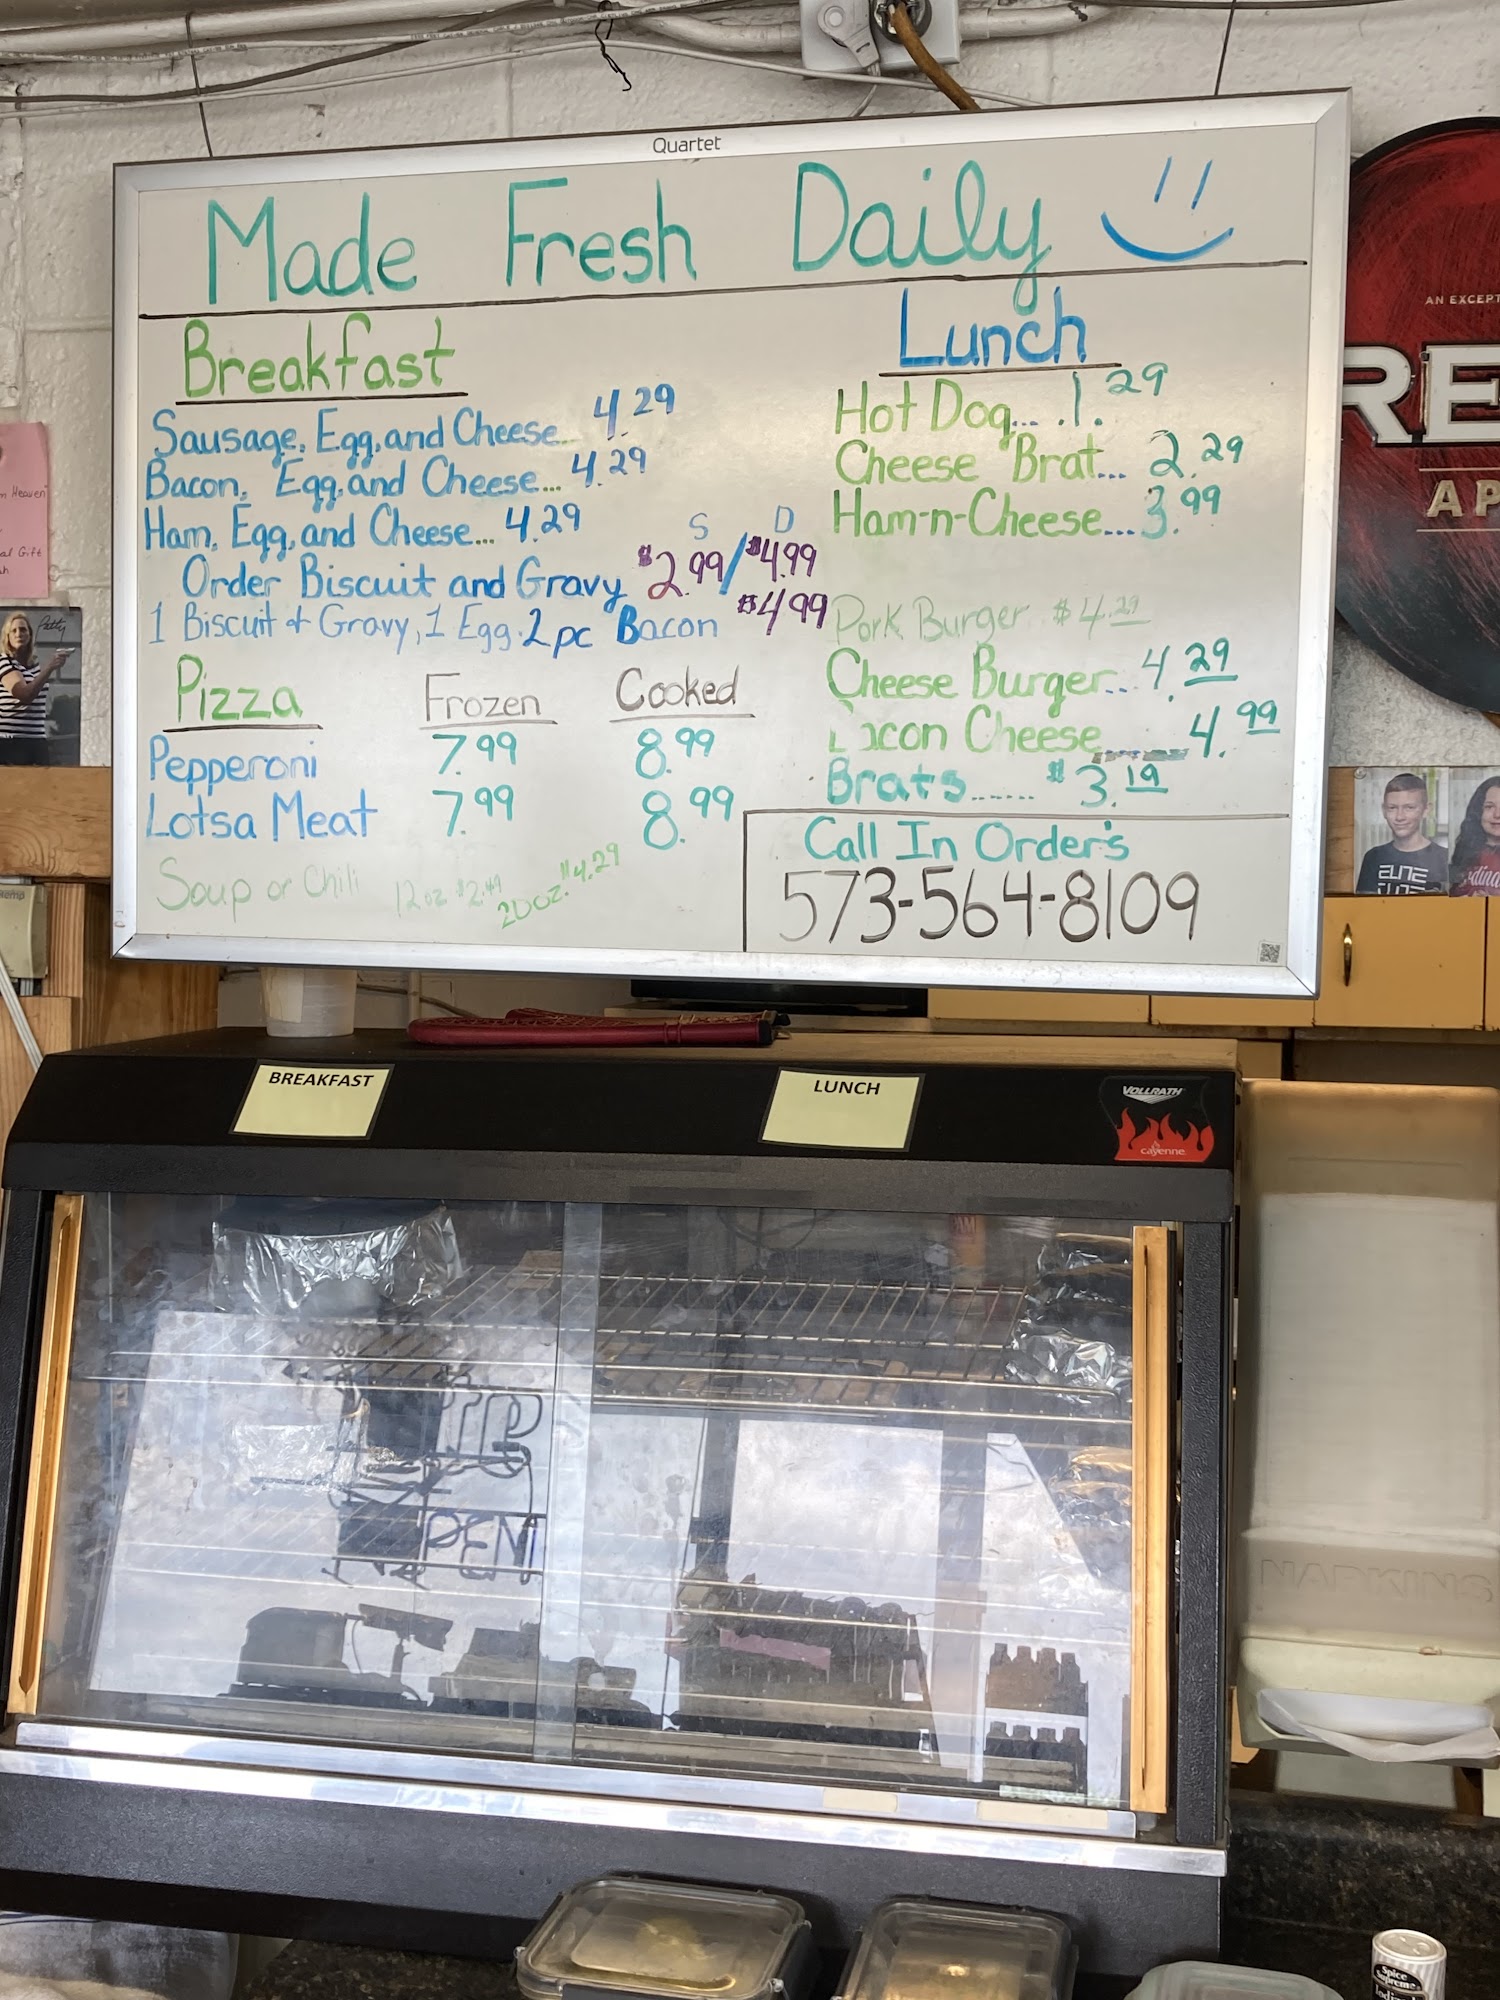 Quartet
Made Fresh Daily
Breakfast
Sausage, Egg, and Cheese... 4.29
Bacon, Egg, and Cheese... 4.29
Ham, Egg, and Cheese... 4.29
S D
Order Biscuit and Gravy $2.99/$4.99
1 Biscuit & Gravy, 1 Egg. 2 pc Bacon $4.99
Pizza Frozen Cooked
Pepperoni 7.99 8.99
Lotsa Meat 7.99 8.99
Soup or Chili 12 oz. $2.49 20oz. $4.29
Lunch
Hot Dog.... 1.29
Cheese Brat... 2.29
Ham-n-Cheese.... 3.99
Pork Burger $4.29
Cheese Burger... 4.29
Bacon Cheese...... 4.99
Brats...... $3.19
Call In Order's
573-564-8109
AN EXCEPT
RE
AP
Heaven
Gift
Patty
ELITE
BREAKFAST
LUNCH
VOLLRATH
cayenne
OPEN
NAPKINS
Spice
Supreme